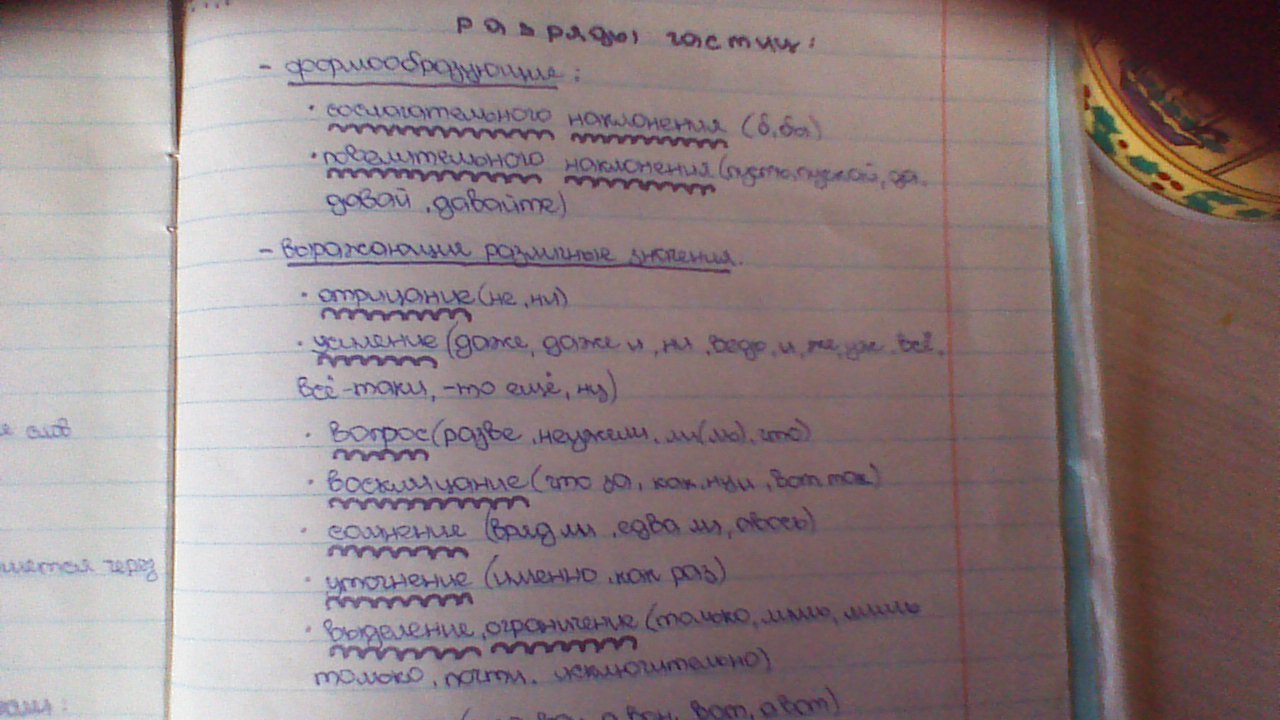 разряды частиц:
- формообразующие:
· сослагательного наклонения (б, бы)
· повелительного наклонения (пусть, пускай, да,
давай, давайте)
- выражающие различные значения.
· отрицание (не, ни)
· усиление (даже, даже и, ни, ведь, и, же, уж, всё,
всё-таки, -то ещё, ну)
· вопрос (разве, неужели, ли (ль), что)
· восклицание (что за, как, ну и, вот так)
· сомнение (вряд ли, едва ли, авось)
· уточнение (именно, как раз)
· выделение, ограничение (только, лишь, лишь
только, почти, исключительно)
вон, вот, а вот)
е слов
шется через